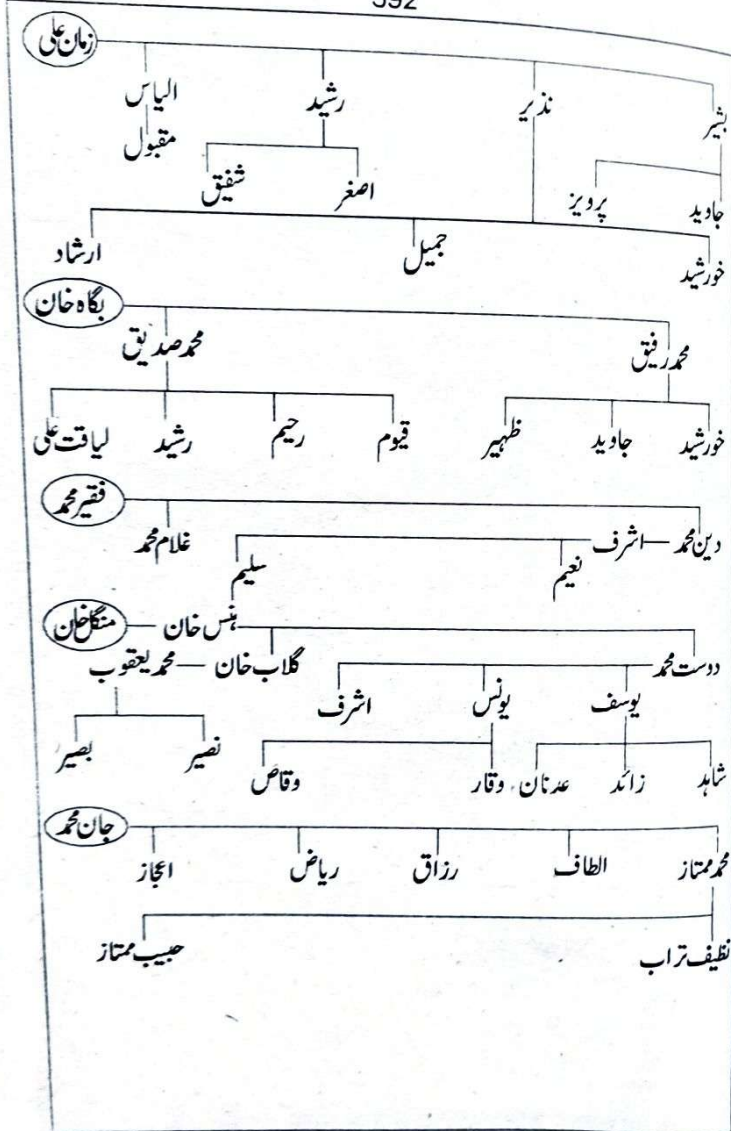 592
زمان علی
بشیر نذیر رشید الیاس
مقبول
جاوید پرویز اصغر شفیق
خورشید جمیل ارشاد
بگاہ خان
محمد رفیق محمد صدیق
خورشید جاوید ظہیر قیوم رحیم رشید لیاقت علی
فقیر محمد
دین محمد اشرف غلام محمد
نعیم سلیم
منگل خان ہنس خان
دوست محمد گلاب خان محمد یعقوب
یوسف یونس اشرف
شاہد زائد عدنان وقار وقاص نصیر بصیر
جان محمد
محمد ممتاز الطاف رزاق ریاض اعجاز
نظیف تراب حبیب ممتاز